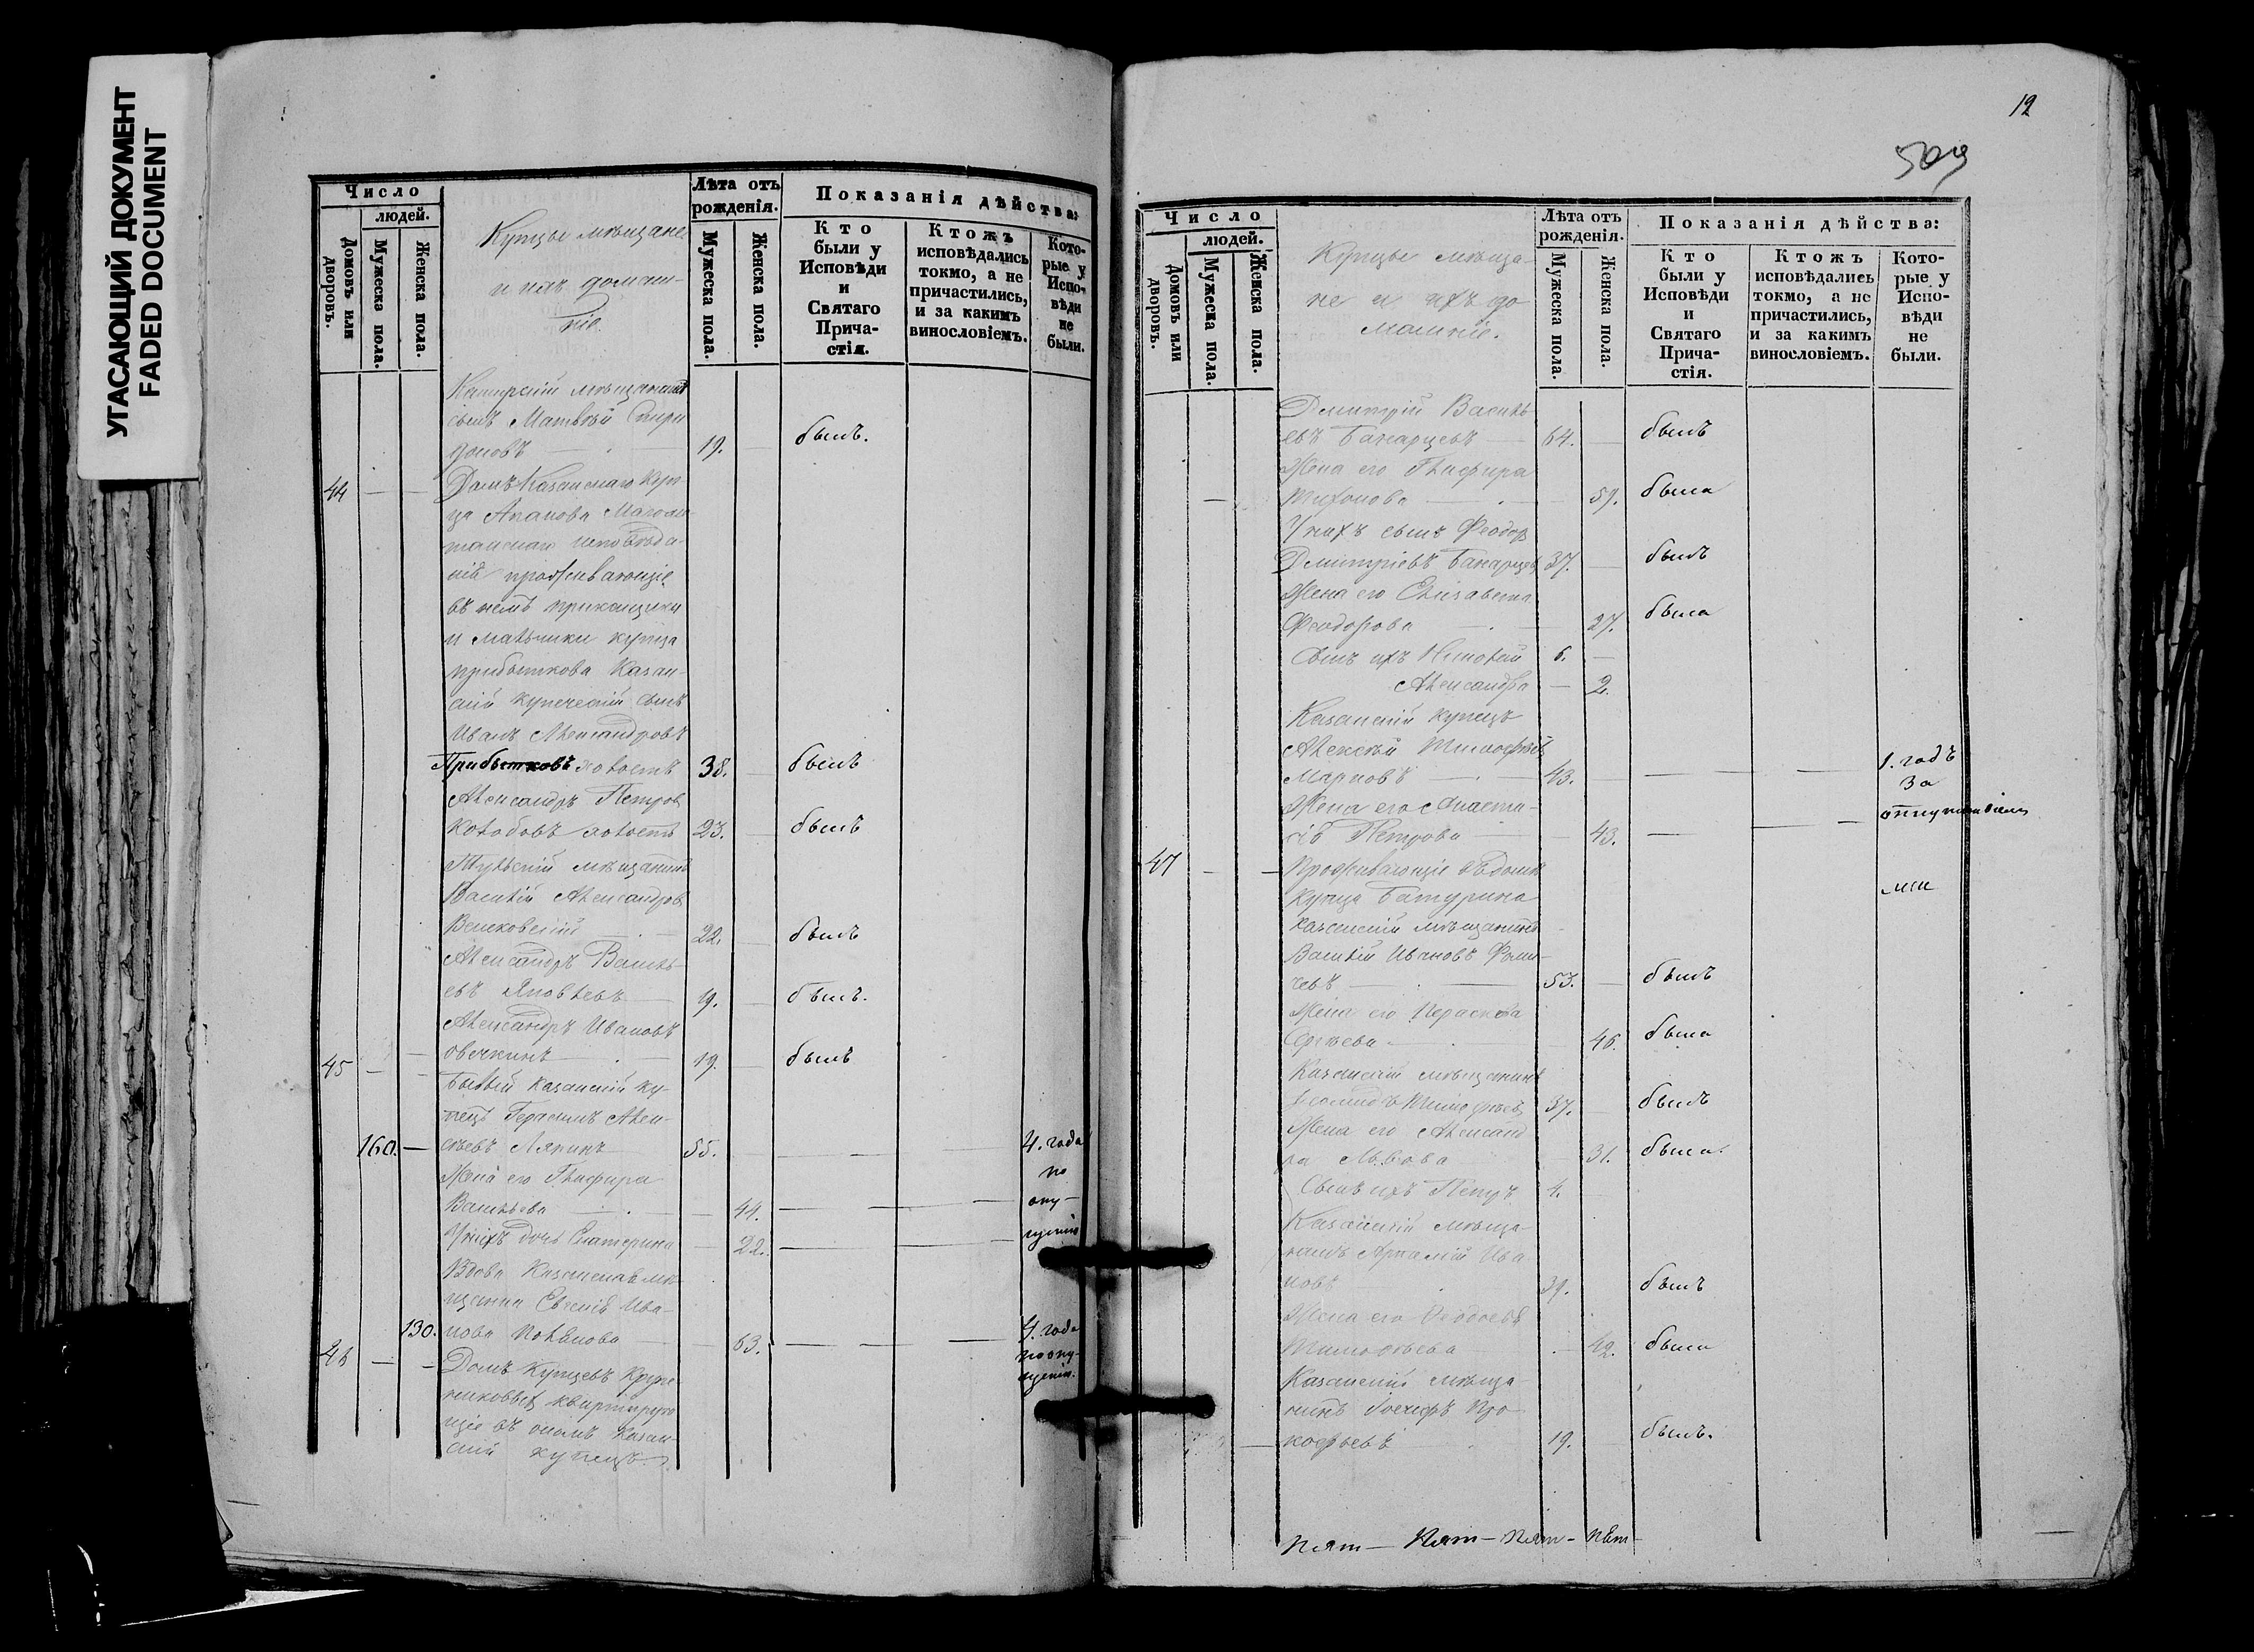 УГАСАЮЩИЙ ДОКУМЕНТ
FADED DOCUMENT
Число
людей.
Домовъ или дворовъ.
Мужеска пола.
Женска пола.
Купцы мѣщане
и ихъ домаш-
ніе.
Лѣта отъ
рожденія.
Мужеска пола.
Женска пола.
Показанія дѣйства:
Кто
были у
Исповѣди
и
Святаго
Прича-
стія.
Ктожъ
исповѣдались
токмо, а не
причастились,
и за какимъ
винословіемъ.
Кото-
рые у
Испо-
вѣди
не
были.
мѣщанскій
сынъ Матвѣй Спири
доновъ 19. былъ.
44 Домъ Казанскаго куп-
ца Апакова Магоме-
танскаго исповѣда-
нія проживающіе
въ немъ прикащики
и мальчики купца
Прибыткова Казан-
скій купеческій сынъ
Иванъ Александровъ
Прибытковъ холостъ 38. былъ
Александръ Петровъ
холостъ 23. былъ
Тульскій мѣщанинъ
Василій Александровъ
22. былъ
Александръ Василь-
евъ Яковлевъ 19. былъ.
Александръ Ивановъ
Овечкинъ 19. былъ
45 Бывшій Казанскій ку-
пецъ Герасимъ Алек-
160. сѣевъ Ляпинъ 55. 4. года
Жена его Глафира по
Васильева 44. опу-
У нихъ дочь Екатерина 22. щенію
Вдова Казанская мѣ-
щанка Евгенія Ива-
130. нова 63. 4. года
по опу-
щенію.
46 Домъ купцевъ Крупе-
никовыхъ квартирую
щіе въ ономъ Казан-
скій купецъ
12
509
Число
людей.
Домовъ или дворовъ.
Мужеска пола.
Женска пола.
Купцы мѣща-
не и ихъ до-
машніе.
Лѣта отъ
рожденія.
Мужеска пола.
Женска пола.
Показанія дѣйства:
Кто
были у
Исповѣди
и
Святаго
Прича-
стія.
Ктожъ
исповѣдались
токмо, а не
причастились,
и за какимъ
винословіемъ.
Кото-
рые у
Испо-
вѣди
не
были.
Дмитрій Василь-
евъ 64. былъ
Жена его Глафира
Тихонова 59. была
У нихъ сынъ Феодоръ
Дмитріевъ 37. былъ
Жена его Елизавета
Феодорова 27. была
Сынъ ихъ Николай 6.
Александра 2.
Казанскій купецъ
Алексѣй Тимофѣевъ
Марковъ 43. 1. годъ
за
Жена его Анаста-
сія Петрова 43.
47 Проживающіе въ домѣ
купца Батурина
Казанскій мѣщанинъ
Василій Ивановъ Фоми-
чевъ 53. былъ
Жена его Параскева
Сергѣева 46. была
Казанскій мѣщанинъ
Леонидъ Тимофѣевъ 37. былъ
Жена его Александ
ра Львова 31. была.
Сынъ ихъ Петръ 4.
Казанскій мѣща-
нинъ Артемій Ива
новъ 39. былъ
Жена его
Тимофѣева 42. была
Казанскій мѣща-
нинъ Іосифъ Про
кофьевъ 19. былъ.